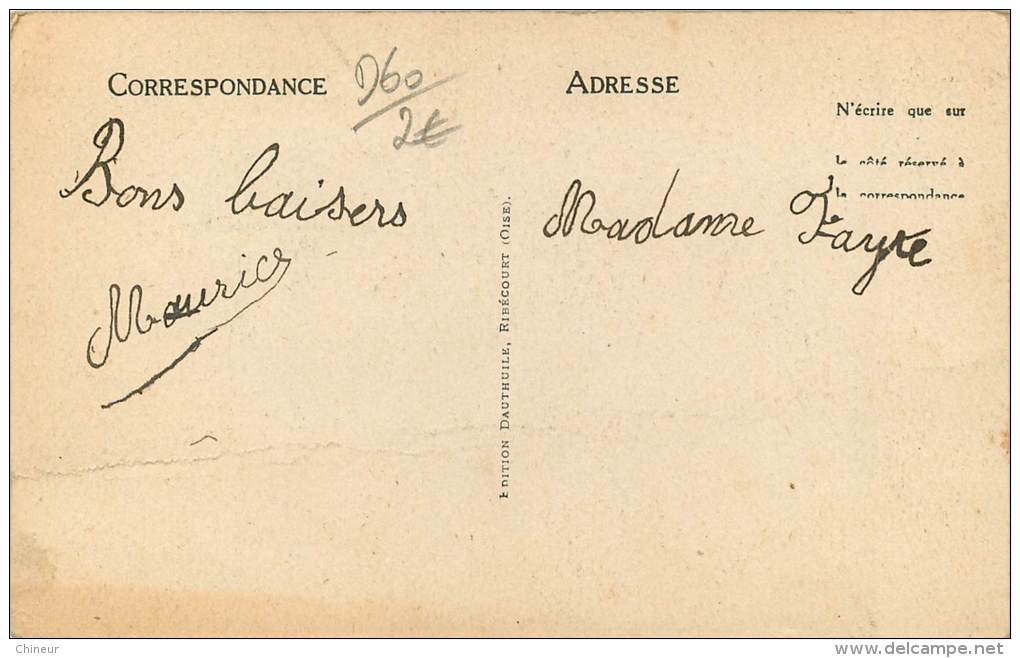 CORRESPONDANCE
D60
2€
Bons baisers
Maurice
EDITION DAUTHUILE, RIBÉCOURT (OISE).
ADRESSE
N'écrire que sur
le côté réservé à
la correspondance
Madame Fayre
Chineur
delcampe.net